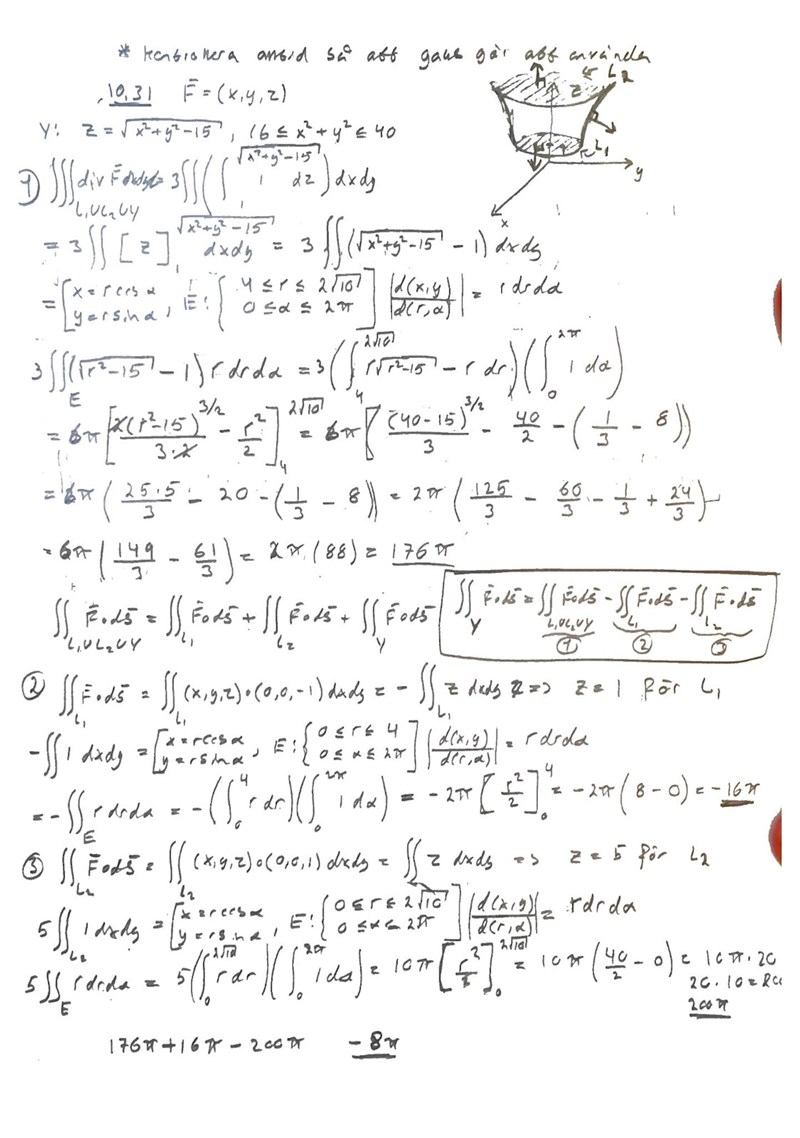 * kontrollera omsid så att gaus går att använda
10.31 F̄ = (x, y, z)
Y: z = √(x²+y²-15), 16 ≤ x²+y² ≤ 40
z L2 L1 y x
① ∭_{L₁∪L₂∪Y} div F̄ dxdydz = 3∬(∫_1^{√(x²+y²-15)} 1 dz) dxdy
= 3∬[z]_1^{√(x²+y²-15)} dxdy = 3∬(√(x²+y²-15) - 1) dxdy
= [x = r cos α, y = r sin α, E: {4 ≤ r ≤ 2√10, 0 ≤ α ≤ 2π] |d(x,y)/d(r,α)| = r dr dα
3∬_E (√(r²-15) - 1) r dr dα = 3(∫_4^{2√10} r√(r²-15) - r dr)(∫_0^{2π} 1 dα)
= 6π[2(r²-15)^{3/2}/3·2 - r²/2]_4^{2√10} = 6π[(40-15)^{3/2}/3 - 40/2 - (1/3 - 8))
= 6π(25·5/3 - 20 - (1/3 - 8)) = 2π(125/3 - 60/3 - 1/3 + 24/3)
= 6π(149/3 - 61/3) = 2π(88) = 176π
∬_{L₁∪L₂∪Y} F̄·ds̄ = ∬_{L₁} F̄·ds̄ + ∬_{L₂} F̄·ds̄ + ∬_Y F̄·ds̄
∬_Y F̄·ds̄ = ∬_{L₁∪L₂∪Y} F̄·ds̄ - ∬_{L₁} F̄·ds̄ - ∬_{L₂} F̄·ds̄
① ② ③
② ∬_{L₁} F̄·ds̄ = ∬_{L₁} (x,y,z)·(0,0,-1) dxdy = -∬_{L₁} z dxdy => z = 1 för L₁
-∬ 1 dxdy = [x = r cos α, y = r sin α, E: {0 ≤ r ≤ 4, 0 ≤ α ≤ 2π] |d(x,y)/d(r,α)| = r dr dα
= -∬_E r dr dα = -(∫_0^4 r dr)(∫_0^{2π} 1 dα) = -2π[r²/2]_0^4 = -2π(8-0) = -16π
③ ∬_{L₂} F̄·ds̄ = ∬_{L₂} (x,y,z)·(0,0,1) dxdy = ∬ z dxdy => z = 5 för L₂
5∬_{L₂} 1 dxdy = [x = r cos α, y = r sin α, E: {0 ≤ r ≤ 2√10, 0 ≤ α ≤ 2π] |d(x,y)/d(r,α)| = r dr dα
5∬_E r dr dα = 5(∫_0^{2√10} r dr)(∫_0^{2π} 1 dα) = 10π[r²/2]_0^{2√10} = 10π(40/2 - 0) = 10π·20
20·10 = 20
200π
176π + 16π - 200π -8π